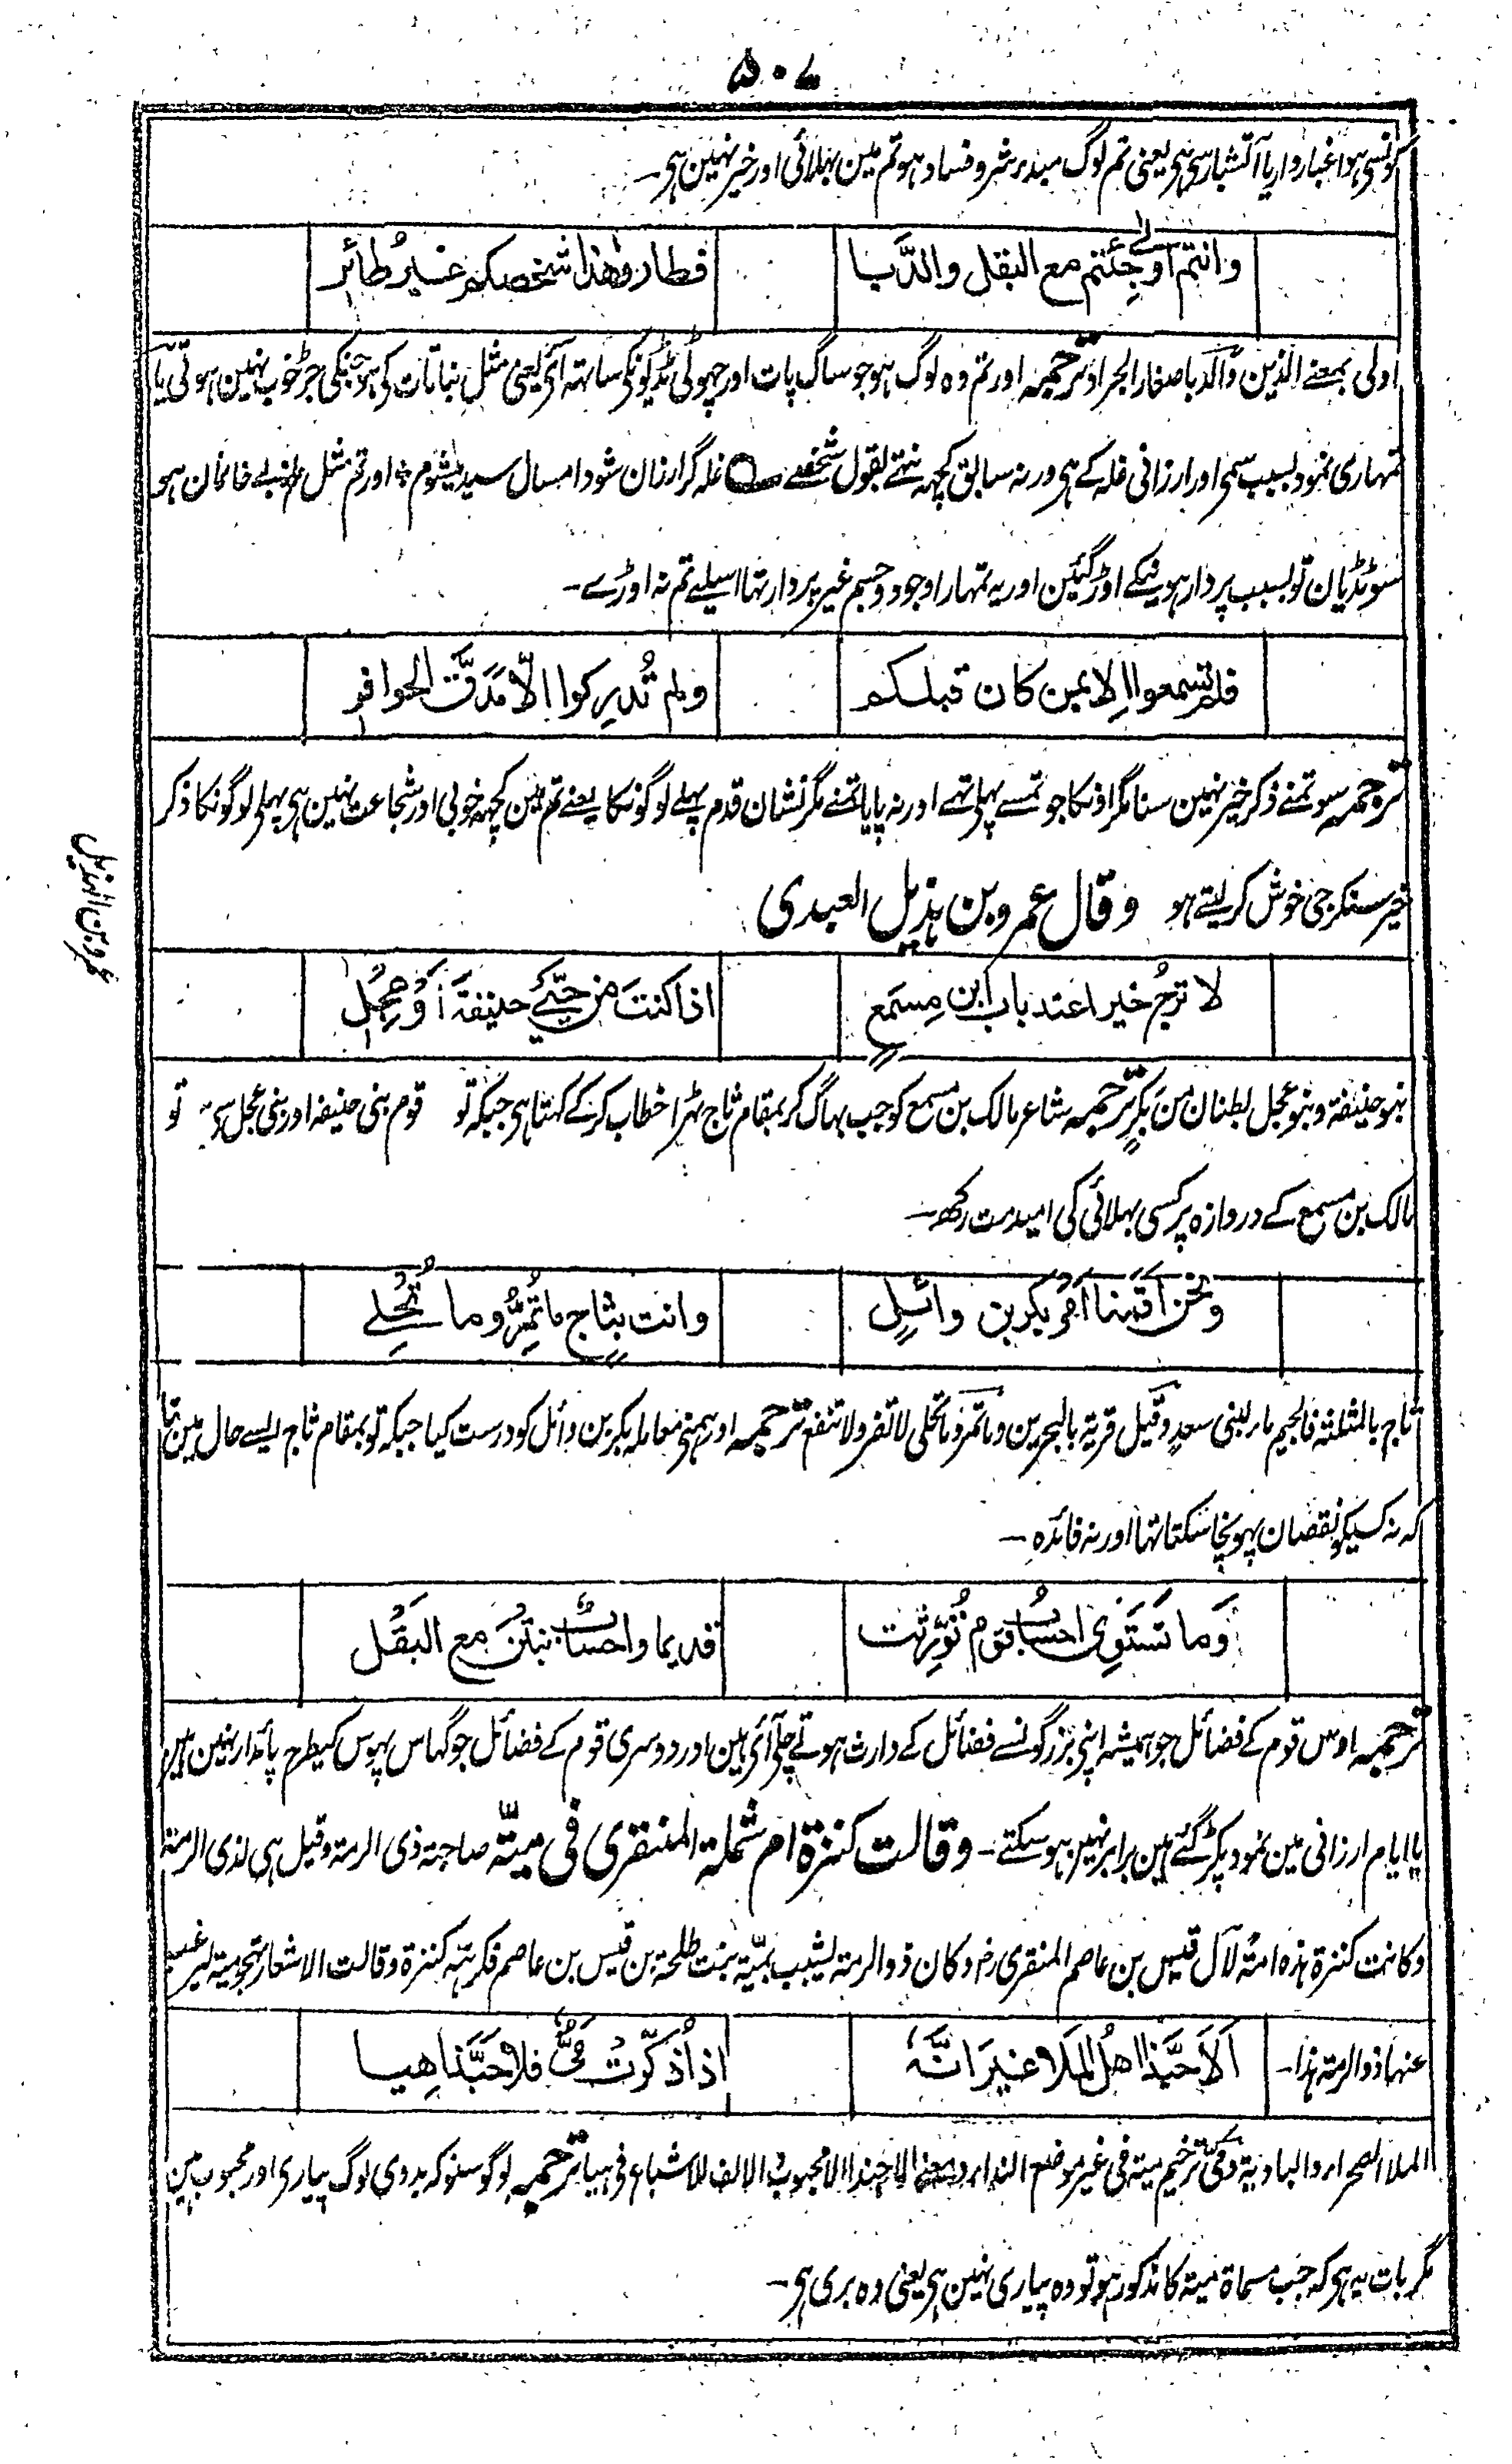 ۵۰۷
کونسی ہوا غبار دار یا آتشبار سی ہی یعنی تم لوگ مبدء شر و فساد ہو تم مین بہلائی اور خیر نہین ہی۔
وانتم اولى جئتم مع البقل والدَّبا فطار وهٰذا شخصكم غيرُ طائر
اولی بمعنے الذین والدبا صغار الجراد ترجمہ اور تم وہ لوگ ہو جو ساگ پات اور چہوٹی ٹڈیونکی ساتہہ آئی یعنی مثل نباتات کی ہو جنکی جڑ خوب نہین ہوتی یا
تمہاری نمود بسبب سمی اور ارزانی غلہ کے ہی ورنہ سابق کچہہ نتہے بقول شخصے غلہ گر ارزان شود امسال سید میشوم ۔ اور تم مثل بے خانمان ہو
سو ٹڈیان تو بسبب پردار ہونیکے اوڑ گئین اور یہ تمہارا وجود و جسم غیر پردار تہا اسیلیے تم نہ اوڑے۔
فلم تسمعوا الا بمن كان قبلكم ولم تُدركوا الّا مَدَقَّ الحوافر
ترجمہ سو تمنے ذکر خیر نہین سنا مگر اونکا جو تمسے پہلی تہے اور نہ پایا تمنے مگر نشان قدم پہلے لوگونکا یعنے تم مین کچہہ خوبی اور شجاعت نہین ہی پہلی لوگونکا ذکر
خیر سنکر جی خوش کر لیتے ہو وقال عمرو بن ہذیل العبدی
عمرو بن الہذیل
لا ترجُ خيرا عند باب ابن مِسمَعٍ اذا كنتَ من حيّي حنيفةَ أو عِجلِ
بنو حنیفة و بنو عجل بطنان من بکرٍ ترجمہ شاعر مالک بن مسمع کو جب بہاگ کر بمقام ثاج ٹہرا خطاب کرکے کہتا ہی جبکہ تو قوم بنی حنیفہ اور بنی عجل سی ہی تو
مالک بن مسمع کے دروازہ پر کسی بہلائی کی امید مت رکھ۔
ونحن اقمنا امرَ بكر بن وائلٍ وانت بثاجٍ ما تُمِرُّ وما تُحلي
ثاج بالمثلثہ فالجیم ماء لبنی سعدٍ وقیل قریة بالبحرین وما تمر وما تحلی لا تضر ولا تنفع ترجمہ اور ہمنے معاملہ بکر بن وائل کو درست کیا جبکہ تو بمقام ثاج ایسے حال مین تہا
کہ نہ کسیکو نقصان پہونچا سکتا تہا اور نہ فائدہ۔
وَما تَستَوِي احسابُ قوم تُوُرِّثت قديما واحسابٌ نبتنَ مع البَقلِ
ترجمہ اوس قوم کے فضائل جو ہمیشہ اپنی بزرگونسے فضائل کے وارث ہوتے چلی آئی ہین اور دوسری قوم کے فضائل جو گہاس پہوس کیطرح پائدار نہین ہین
یا ایام ارزانی مین نمود پکڑ گئے ہین برابر نہین ہو سکتے۔ وقالت کنزة ام شملة المنقری فی میّة صاحبة ذی الرمة وقیل ہی لذی الرمة
وکانت کنزة ہذہ امةً لآل قیس بن عاصم المنقری رض وکان ذو الرمة یشبب بمیّة بنت طلحة بن قیس بن عاصم فکرہتہ کنزة وقالت الاشعار تہجو میة لیرغب
عنہا ذو الرمة ہذا۔ اَلا حَبَّذا اهلُ المَلا غيرَ انَّهُ اذا ذُكِرَت مَيٌّ فلا حَبَّذا هِيا
الملا الصحراء والبادیة ومیّ ترخیم میة فی غیر موضع النداء والالف للاشباع فی ہیا ترجمہ لوگو سنو کہ بدوی لوگ پیاری اور محبوب ہین
مگر بات یہ ہی کہ جب مسماة میة کا مذکور ہو تو وہ پیاری نہین ہی یعنی وہ بری ہی۔